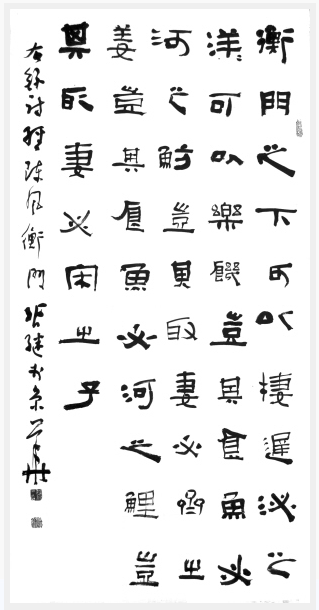 衡門之下可以棲遲泌之
洋〻可以樂饑豈其食魚必
河之魴豈其取妻必齊之
姜豈其食魚必河之鯉豈
其取妻必宋之子
右錄詩經陳風衡門張繼於京華